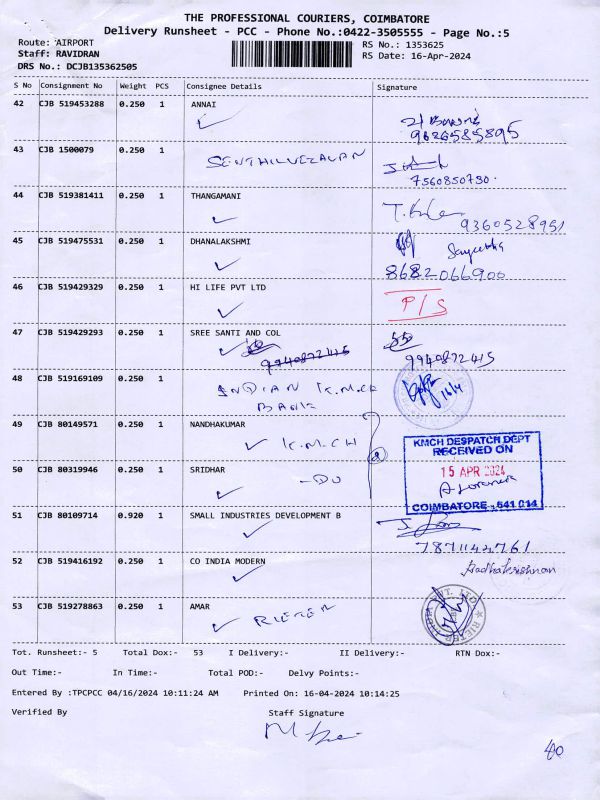 THE PROFESSIONAL COURIERS, COIMBATORE
Delivery Runsheet - PCC - Phone No.:0422-3505555 - Page No.:5
Route: AIRPORT
Staff: RAVIDRAN
DRS No.: DCJB135362505
RS No.: 1353625
RS Date: 16-Apr-2024
S No Consignment No Weight PCS Consignee Details Signature
42 CJB 519453288 0.250 1 ANNAI
9626585895
43 CJB 1500079 0.250 1 SENTHILVEZAVAN
7560850730
44 CJB 519381411 0.250 1 THANGAMANI
9360528951
45 CJB 519475531 0.250 1 DHANALAKSHMI
8682066900
46 CJB 519429329 0.250 1 HI LIFE PVT LTD P/S
47 CJB 519429293 0.250 1 SREE SANTI AND COL
9940872415 9940872415
48 CJB 519169109 0.250 1 INDIAN K.M.CH
BANK
16/4
49 CJB 80149571 0.250 1 NANDHAKUMAR
K.M.CH
KMCH DESPATCH DEPT
RECEIVED ON
15 APR 2024
COIMBATORE - 641 014
50 CJB 80319946 0.250 1 SRIDHAR
-DO
51 CJB 80109714 0.920 1 SMALL INDUSTRIES DEVELOPMENT B
7871142761
52 CJB 519416192 0.250 1 CO INDIA MODERN
Radhakrishnan
53 CJB 519278863 0.250 1 AMAR
RIETER
Tot. Runsheet:- 5 Total Dox:- 53 I Delivery:- II Delivery:- RTN Dox:-
Out Time:- In Time:- Total POD:- Delvy Points:-
Entered By :TPCPCC 04/16/2024 10:11:24 AM Printed On: 16-04-2024 10:14:25
Verified By Staff Signature
40